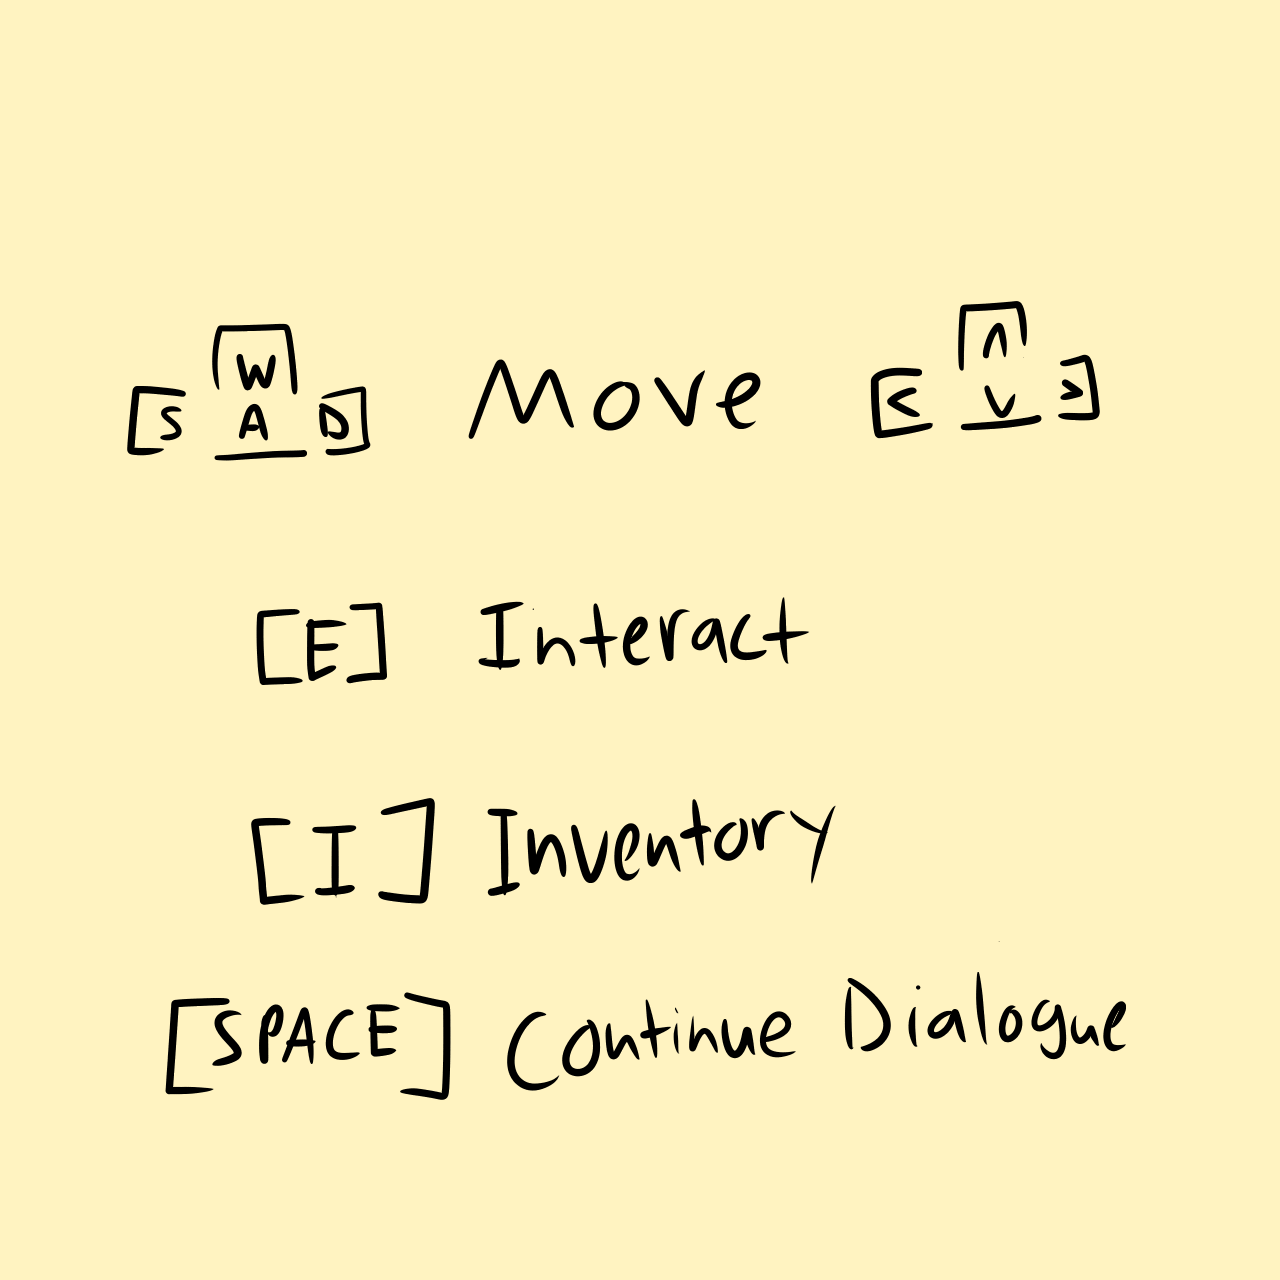 W
[S A D] Move [< ^ v >]
[E] Interact
[I] Inventory
[SPACE] Continue Dialogue